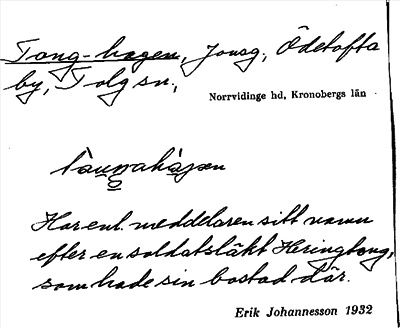 Tong-hagen, Jonsg, Ödetofta
by, Tolg sn.,
Norrvidinge hd, Kronobergs län
Har enl. meddelaren sitt namn
efter en soldatsläkt Heringtong,
som hade sin bostad där.
Erik Johannesson 1932